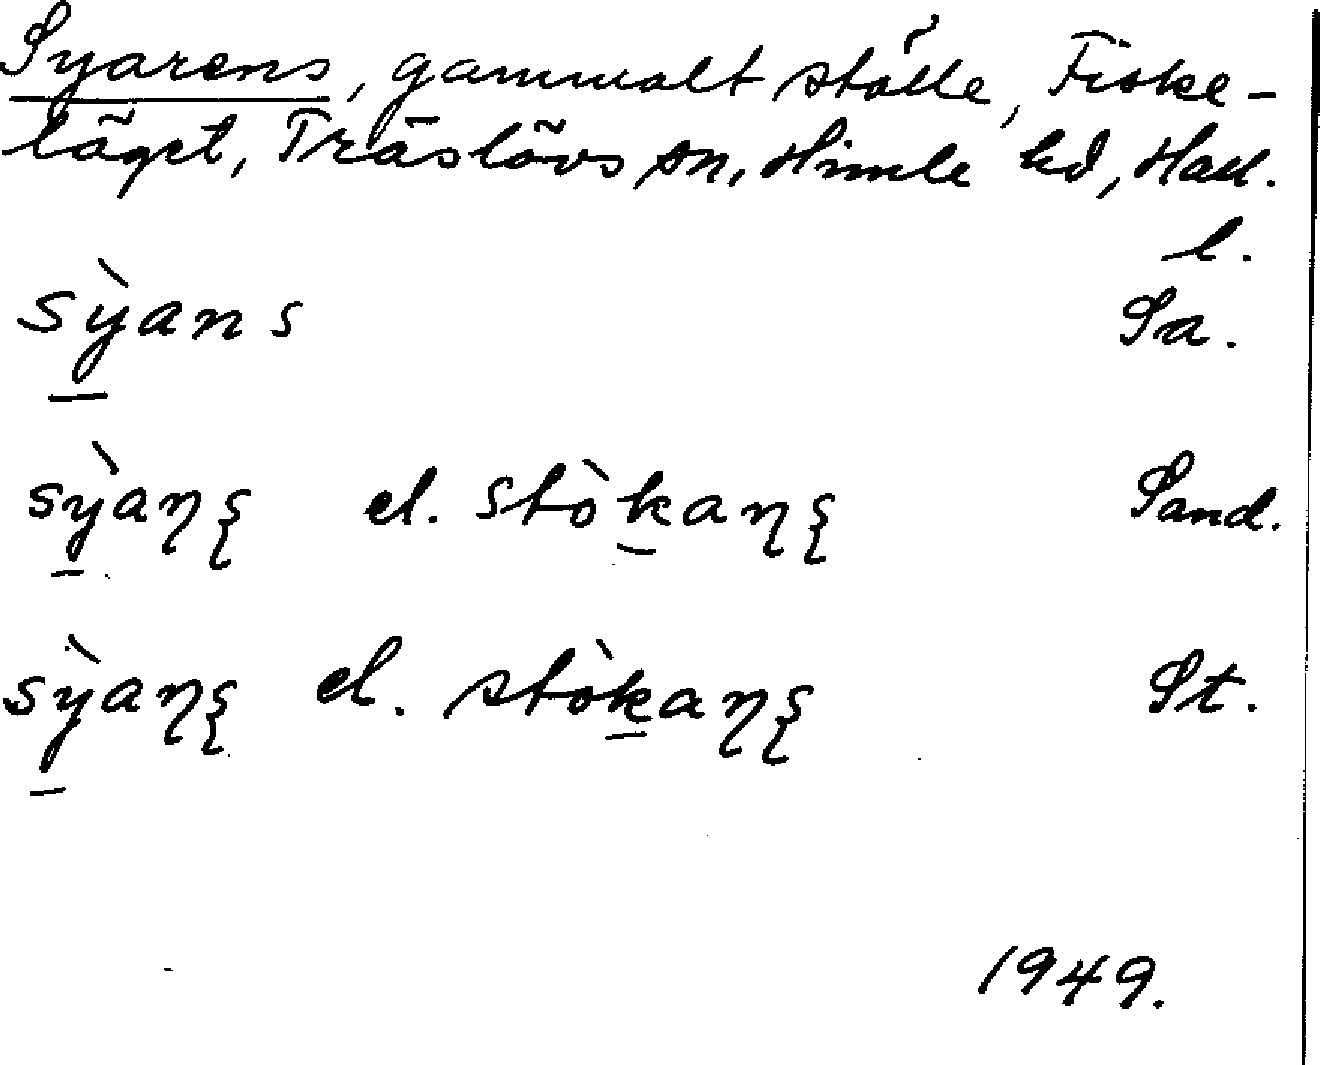 Syarens, gammalt ställe, Fiske-
läget, Träslövs sn, Himle hd, Hall.
l.
sỳans Sa.
sỳaꞑʂ el. stòkaꞑʂ Sand.
sỳaꞑʂ el. stòkaꞑʂ St.
1949.